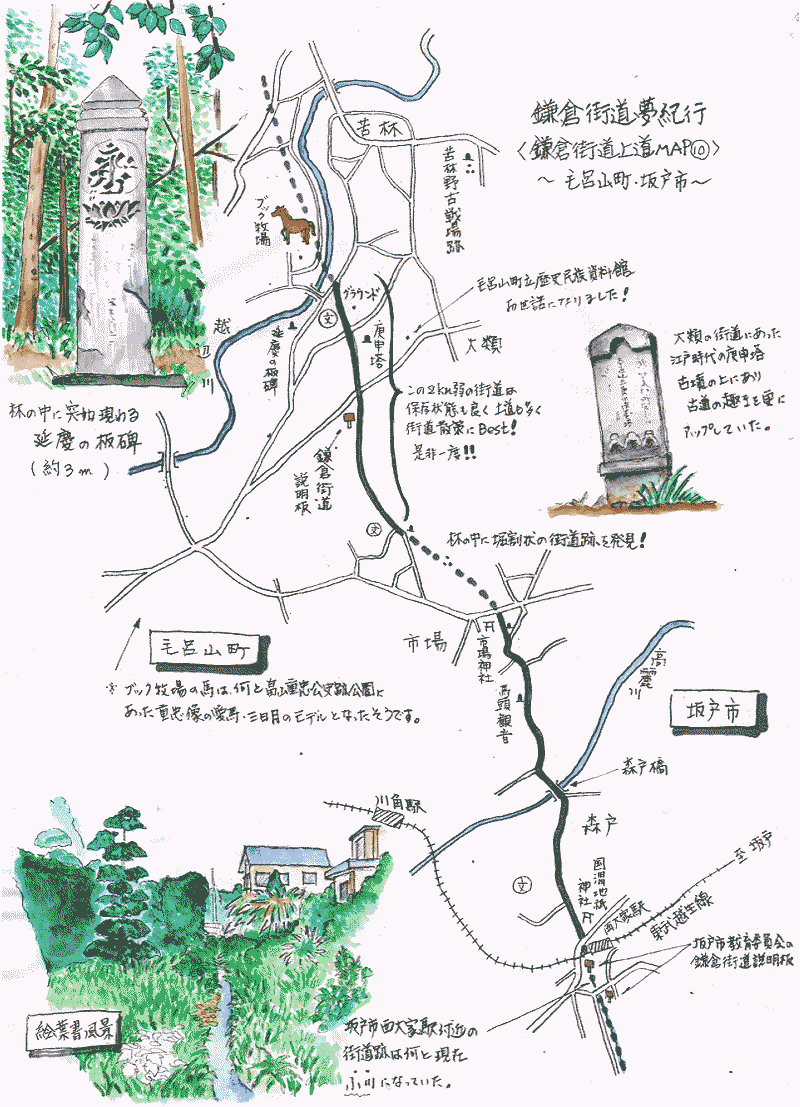 鎌倉街道夢紀行
〈鎌倉街道上道MAP⑩〉
〜毛呂山町・坂戸市〜
苦林
苦林野古戦場跡
ブック牧場
グラウンド
文
庚申塔
延慶の板碑
越辺川
大類
毛呂山町立歴史民族資料館
お世話になりました!
この2km弱の街道は
保存状態も良く土道も多く
街道散策にBest!
是非一度!!
大類の街道にあった
江戸時代の庚申塔
古墳の上にあり
古道の趣きを更に
アップしていた。
林の中に突如現れる
延慶の板碑
(約3m)
鎌倉街道
説明板
文
林の中に堀割状の街道跡を発見!
市場
市場神社
馬頭観音
毛呂山町
※ブック牧場の馬は、何と畠山重忠公史跡公園に
あった重忠像の愛馬・三日月のモデルとなったそうです。
高麗川
坂戸市
森戸橋
川角駅
森戸
文
国渭地祇
神社
西大家駅
東武越生線
至坂戸
坂戸市教育委員会の
鎌倉街道説明板
絵葉書風景
坂戸市西大家駅付近の
街道跡は何と現在
小川になっていた。